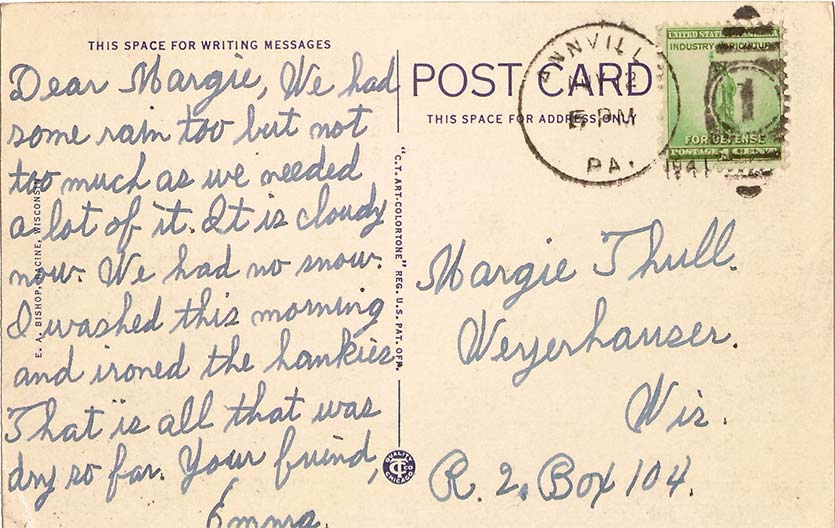 THIS SPACE FOR WRITING MESSAGES
Dear Margie, We had
some rain too but not
too much as we needed
a lot of it. It is cloudy
now. We had no snow.
I washed this morning
and ironed the hankies.
That is all that was
dry so far. Your friend,
Emma.
E. A. BISHOP, RACINE, WISCONSIN
"C.T. ART-COLORTONE" REG. U.S. PAT. OFF.
QUALITY
CT CO
CHICAGO
POST CARD
THIS SPACE FOR ADDRESS ONLY
ANNVILLE
5 PM
PA.
1941
UNITED STATES OF AMERICA
INDUSTRY AGRICULTURE
FOR DEFENSE
POSTAGE 1 CENT
1
Margie Thull.
Weyerhauser.
Wis.
R. 2. Box 104.